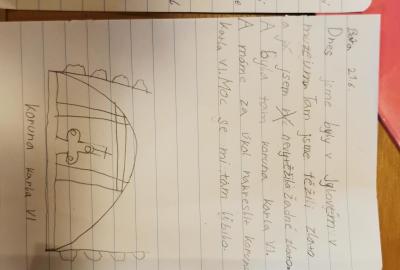 Bára 21.6
Dnes jsme byly v Jylovém v
muzeumu Tam jsme těžili zlato
a já jsem nevytěžila žádné zlato
A byla tam koruna karla VI.
A máme za úkol nakreslit korun
karla VI. Moc se mi tam líbilo.
koruna karla VI